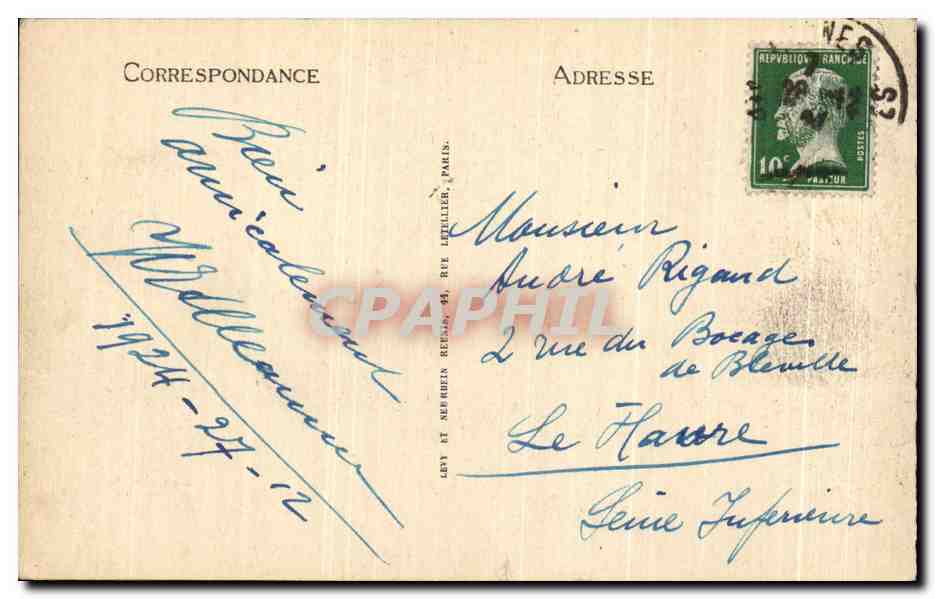 CORRESPONDANCE
ADRESSE
REPVBLIQVE FRANÇAISE
10c
POSTES
PASTEUR
Bien
amicalement
1924-27-12
LEVY ET NEURDEIN REUNIS, 44, RUE LETELLIER, PARIS.
Monsieur
André Rigaud
2 rue du Bocage
de Bléville
Le Havre
Seine Inferieure
CPAPHIL